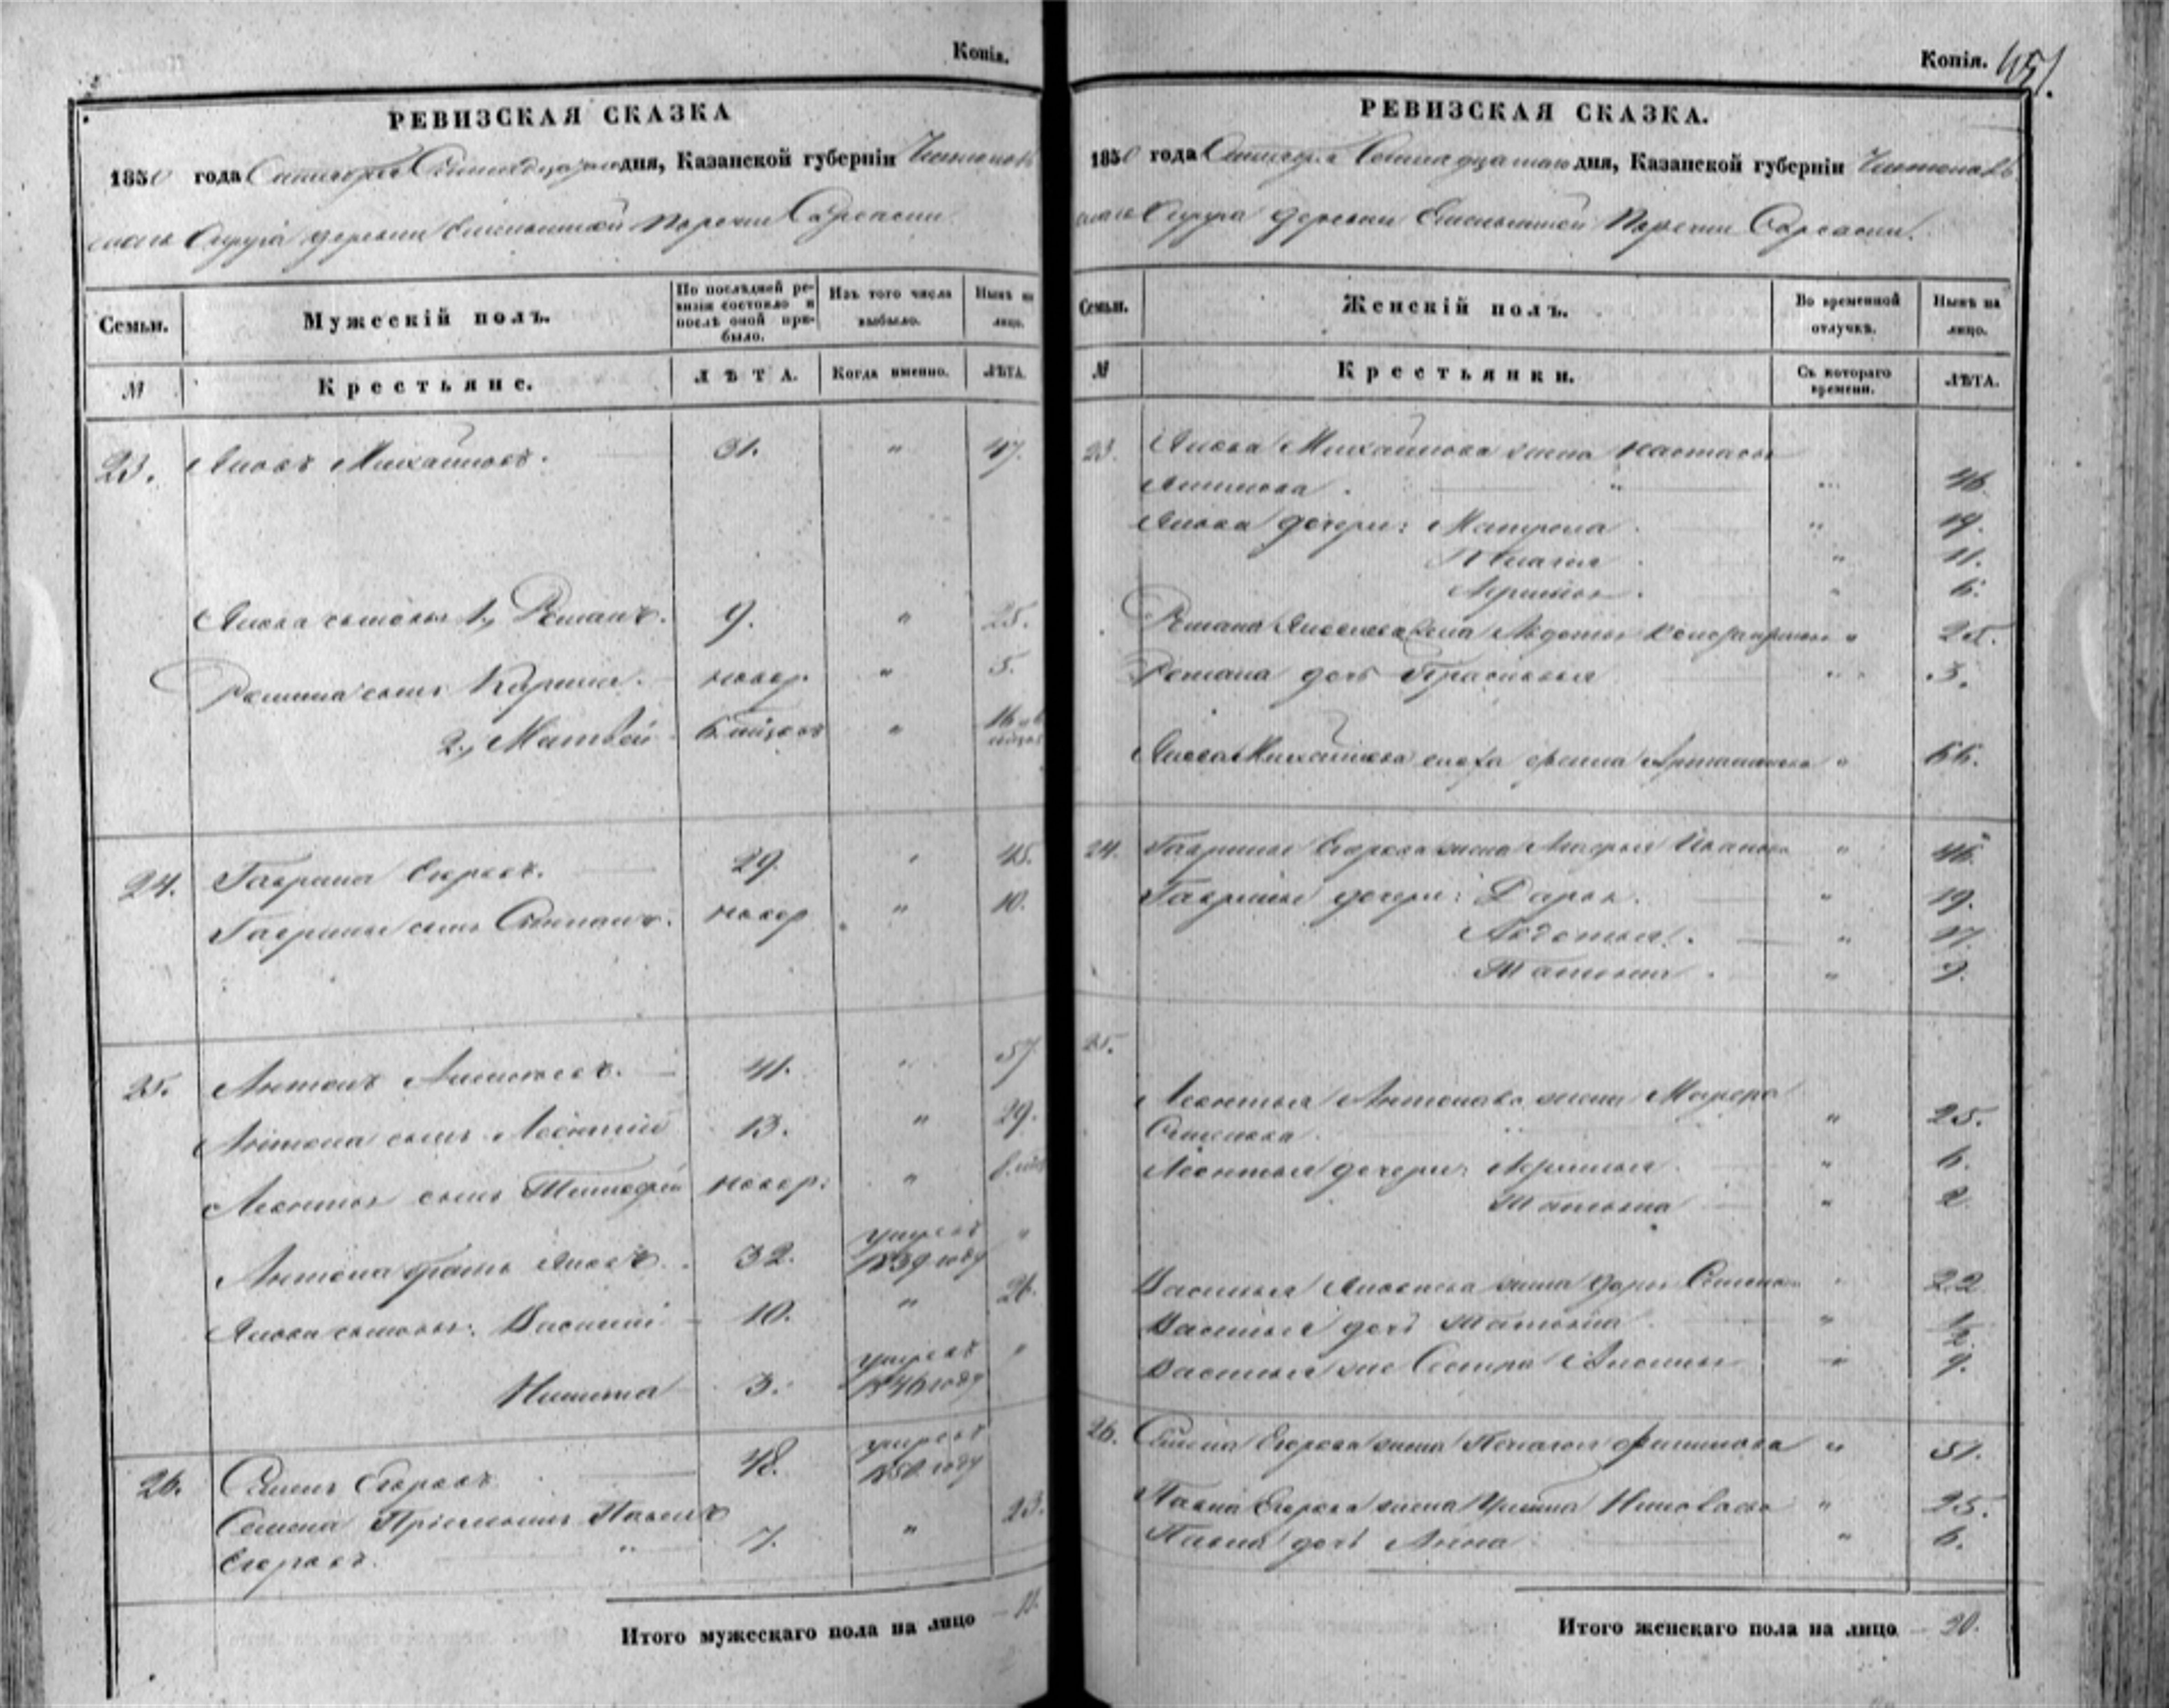 Копія.
РЕВИЗСКАЯ СКАЗКА
1850 года Октября Семнадцатаго дня, Казанской губерніи Чистополь
скаго Округа деревни
Семьи.
Мужескій полъ.
По послѣдней ре-
визіи состояло и
послѣ оной при-
было.
Изъ того числа
выбыло.
Нынѣ на
лицо.
№
Крестьяне.
ЛѢТА.
Когда именно.
ЛѢТА.
23. Яковъ Михайловъ. 31. " 47.
Якова сыновья 1, Романъ. 9. " 25.
Романа сынъ Кирила. новор. " 5.
2, Матвей 6 мѣсяцов "
24. Гаврила Егоровъ. 29. " 45.
Гаврилы сынъ Степанъ. новор " 10.
25. Антонъ Алексеевъ. 41. " 57
Антона сынъ Леонтий 13. " 29.
Леонтья сынъ Тимофей новор: "
Антона братъ Яковъ. 32. умреъ 1839 году "
Якова сыновья: Василий 10. " 26.
Никита 3. умреъ 1846 году "
26. Семенъ Егоровъ 48. умреъ 1850 году
Семена Пріемышъ Павелъ
Егоровъ. " 7. " 23.
Итого мужескаго пола на лицо 11.
Копія. 451.
РЕВИЗСКАЯ СКАЗКА.
1850 года Октября Семнадцатаго дня, Казанской губерніи Чистополь
скаго Округа деревни
Семьи.
Женскій полъ.
Во временной
отлучкѣ.
Нынѣ на
лицо.
№
Крестьянки.
Съ котораго
времени.
ЛѢТА.
23. Якова Михайлова жена Настасья
" " 46.
Якова дочери: Матрена " 19.
Пелагея " 11.
Аксинья " 6.
Романа Яковлева жена Авдотья " 25.
Романа дочь Прасковья " 3.
Якова Михайлова сноха " 66.
24. Гаврилы Егорова жена Марфа Иванова " 46.
Гаврилы дочери: Дарья. " 19.
Авдотья. " 17.
Татьяна. " 9.
25.
Леонтья Антонова жена
Семенова " 25.
Леонтья дочери: Аксинья " 6.
Татьяна " 2
Василья Яковлева жена Дарья Семенова " 22
Василья дочь Татьяна " 1/2
Василья же Сестра " 9.
26. Семена Егорова жена Пелагея Филипова " 51.
Павла Егорова жена " 25.
Павла дочь Анна " 6.
Итого женскаго пола на лицо 20.